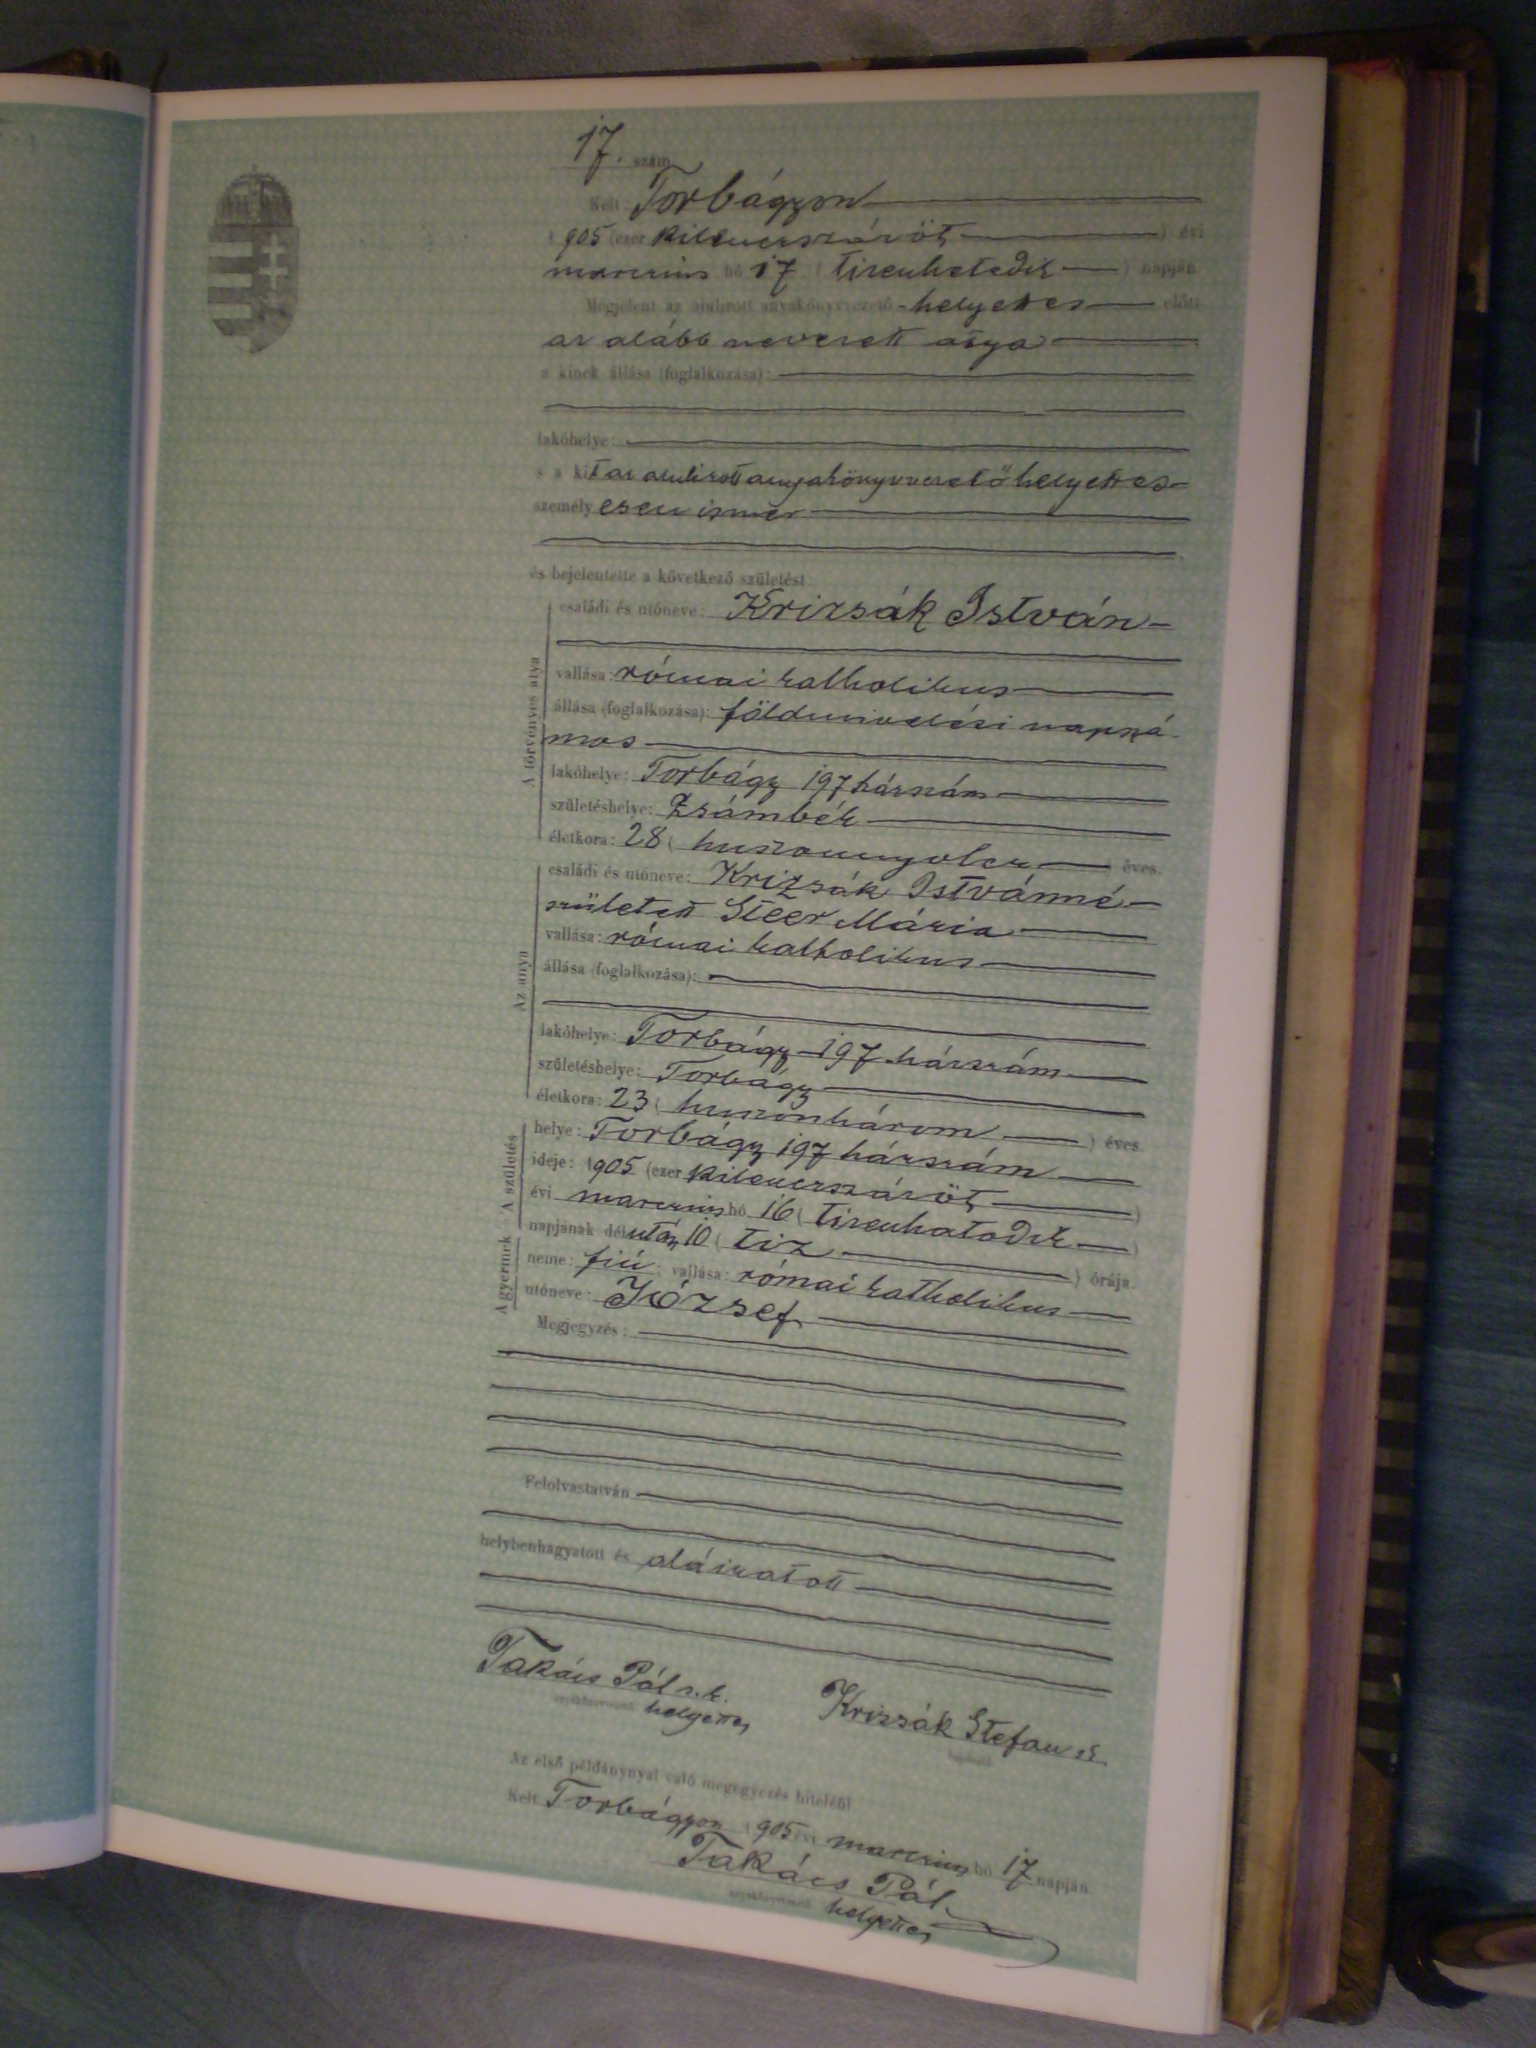 17. szám
Kelt: Torbágyon
1905 (ezer kilenczszázöt) évi
marczius hó 17 (tizenhetedik) napján
Megjelent az alulirott anyakönyvvezető-helyettes előtt
az alább nevezett atya
a kinek állása (foglalkozása):
lakóhelye:
s a kit az alulirott anyakönyvvezető helyettes
személyesen ismer
és bejelentette a következő születést:
A törvényes atya
családi és utóneve: Krizsák István
vallása: római katholikus
állása (foglalkozása): földmivelési napszá-
mos
lakóhelye: Torbágy 197 házszám
születéshelye: Zsámbék
életkora: 28 (huszonnyolcz) éves.
Az anya
családi és utóneve: Krizsák Istvánné
született Steer Mária
vallása: római katholikus
állása (foglalkozása):
lakóhelye: Torbágy 197 házszám
születéshelye: Torbágy
életkora: 23 (huszonhárom) éves.
A születés
helye: Torbágy 197 házszám
ideje: 1905 (ezer kilenczszázöt)
évi marczius hó 16 (tizenhatodik)
napjának délután 10 (tiz) órája.
A gyermek
neme: fiú; vallása: római katholikus
utóneve: József
Megjegyzés:
Felolvastatván
helybenhagyatott és aláiratott
Takács Pál s.k. Krizsák Stefan sk
anyakönyvvezető helyettes bejelentő
Az első példánynyal való megegyezés hiteléül
Kelt Torbágyon 1905 évi marczius hó 17 napján
Takács Pál
anyakönyvvezető helyettes